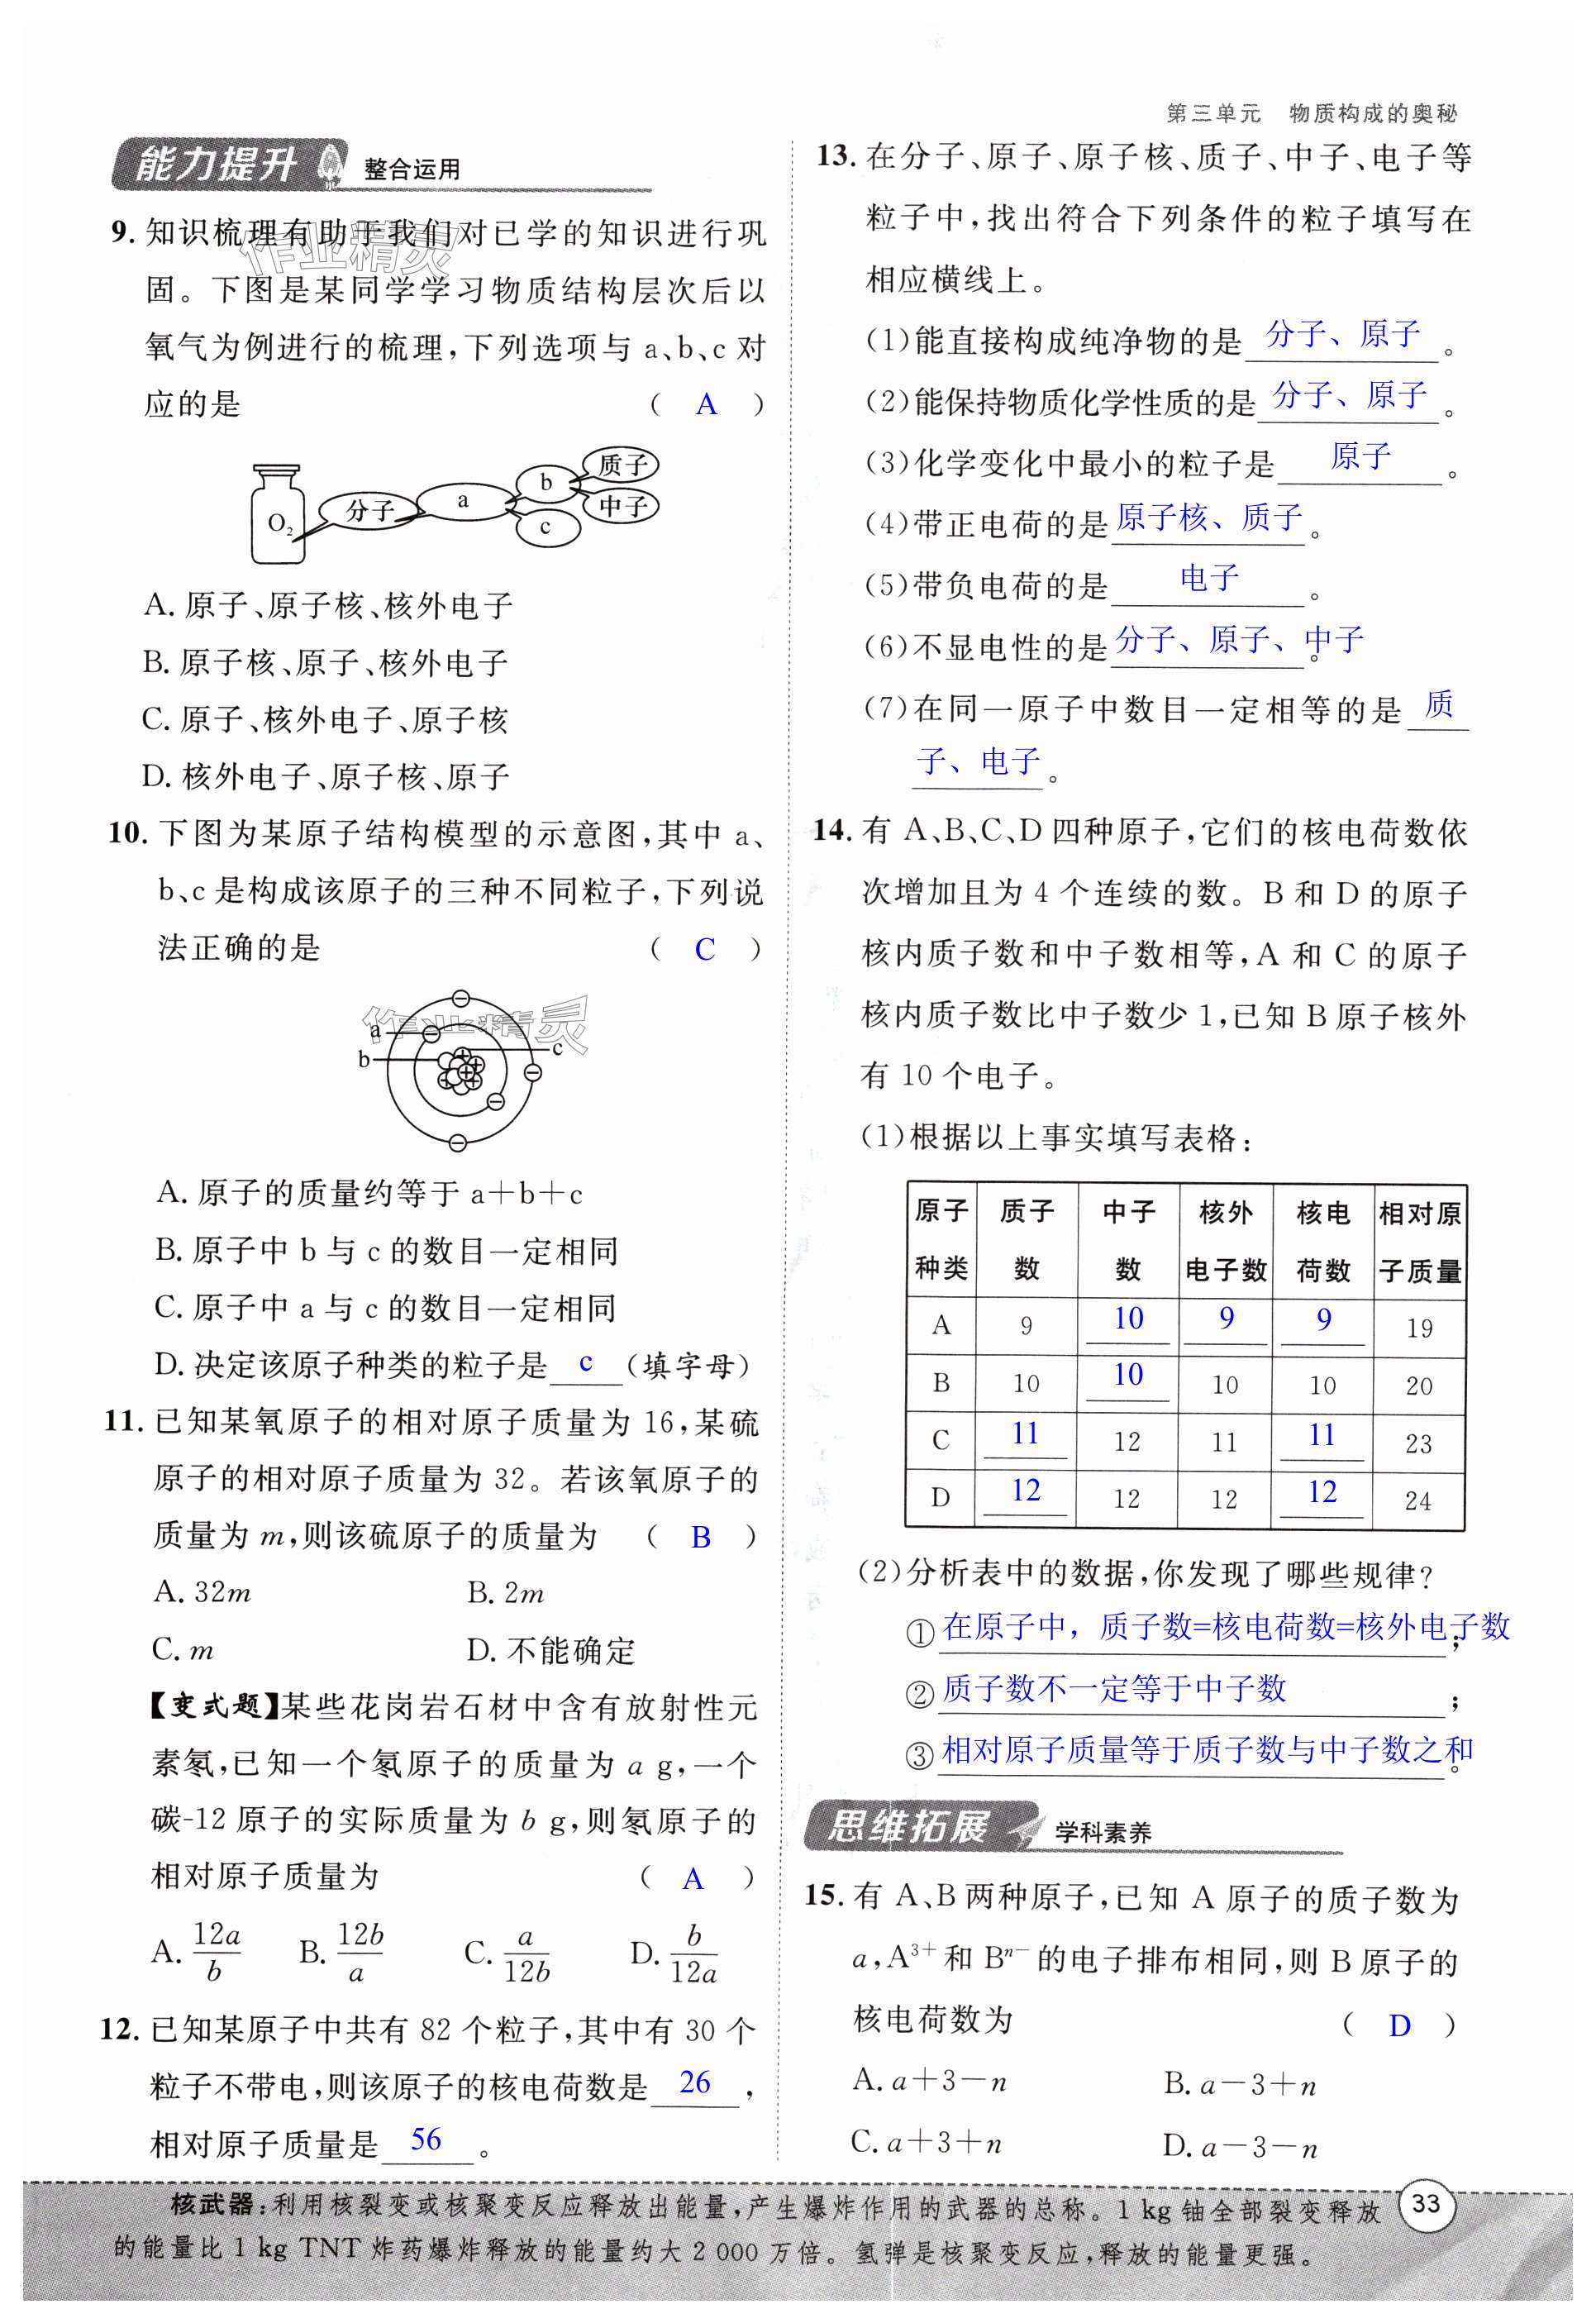 第三单元 物质构成的奥秘
能力提升 整合运用
9. 知识梳理有助于我们对已学的知识进行巩
固。下图是某同学学习物质结构层次后以
氧气为例进行的梳理,下列选项与 a、b、c 对
应的是 ( A )
O₂ 分子 a b 质子 中子 c
A. 原子、原子核、核外电子
B. 原子核、原子、核外电子
C. 原子、核外电子、原子核
D. 核外电子、原子核、原子
10. 下图为某原子结构模型的示意图,其中 a、
b、c 是构成该原子的三种不同粒子,下列说
法正确的是 ( C )
作业精灵
a
b
c
A. 原子的质量约等于 a+b+c
B. 原子中 b 与 c 的数目一定相同
C. 原子中 a 与 c 的数目一定相同
D. 决定该原子种类的粒子是 c (填字母)
11. 已知某氧原子的相对原子质量为 16,某硫
原子的相对原子质量为 32。若该氧原子的
质量为 m,则该硫原子的质量为 ( B )
A. 32m B. 2m
C. m D. 不能确定
【变式题】某些花岗岩石材中含有放射性元
素氡,已知一个氡原子的质量为 a g,一个
碳-12 原子的实际质量为 b g,则氡原子的
相对原子质量为 ( A )
A. 12a/b B. 12b/a C. a/12b D. b/12a
12. 已知某原子中共有 82 个粒子,其中有 30 个
粒子不带电,则该原子的核电荷数是 26 ,
相对原子质量是 56 。
13. 在分子、原子、原子核、质子、中子、电子等
粒子中,找出符合下列条件的粒子填写在
相应横线上。
(1)能直接构成纯净物的是 分子、原子 。
(2)能保持物质化学性质的是 分子、原子 。
(3)化学变化中最小的粒子是 原子 。
(4)带正电荷的是 原子核、质子 。
(5)带负电荷的是 电子 。
(6)不显电性的是 分子、原子、中子 。
(7)在同一原子中数目一定相等的是 质
子、电子 。
14. 有 A、B、C、D 四种原子,它们的核电荷数依
次增加且为 4 个连续的数。B 和 D 的原子
核内质子数和中子数相等,A 和 C 的原子
核内质子数比中子数少 1,已知 B 原子核外
有 10 个电子。
(1)根据以上事实填写表格:
原子种类 质子数 中子数 核外电子数 核电荷数 相对原子质量
A 9 10 9 9 19
B 10 10 10 10 20
C 11 12 11 11 23
D 12 12 12 12 24
(2)分析表中的数据,你发现了哪些规律?
① 在原子中,质子数=核电荷数=核外电子数 ;
② 质子数不一定等于中子数 ;
③ 相对原子质量等于质子数与中子数之和 。
思维拓展 学科素养
15. 有 A、B 两种原子,已知 A 原子的质子数为
a,A³⁺ 和 Bⁿ⁻ 的电子排布相同,则 B 原子的
核电荷数为 ( D )
A. a+3-n B. a-3+n
C. a+3+n D. a-3-n
核武器:利用核裂变或核聚变反应释放出能量,产生爆炸作用的武器的总称。1 kg 铀全部裂变释放
的能量比 1 kg TNT 炸药爆炸释放的能量约大 2 000 万倍。氢弹是核聚变反应,释放的能量更强。
33